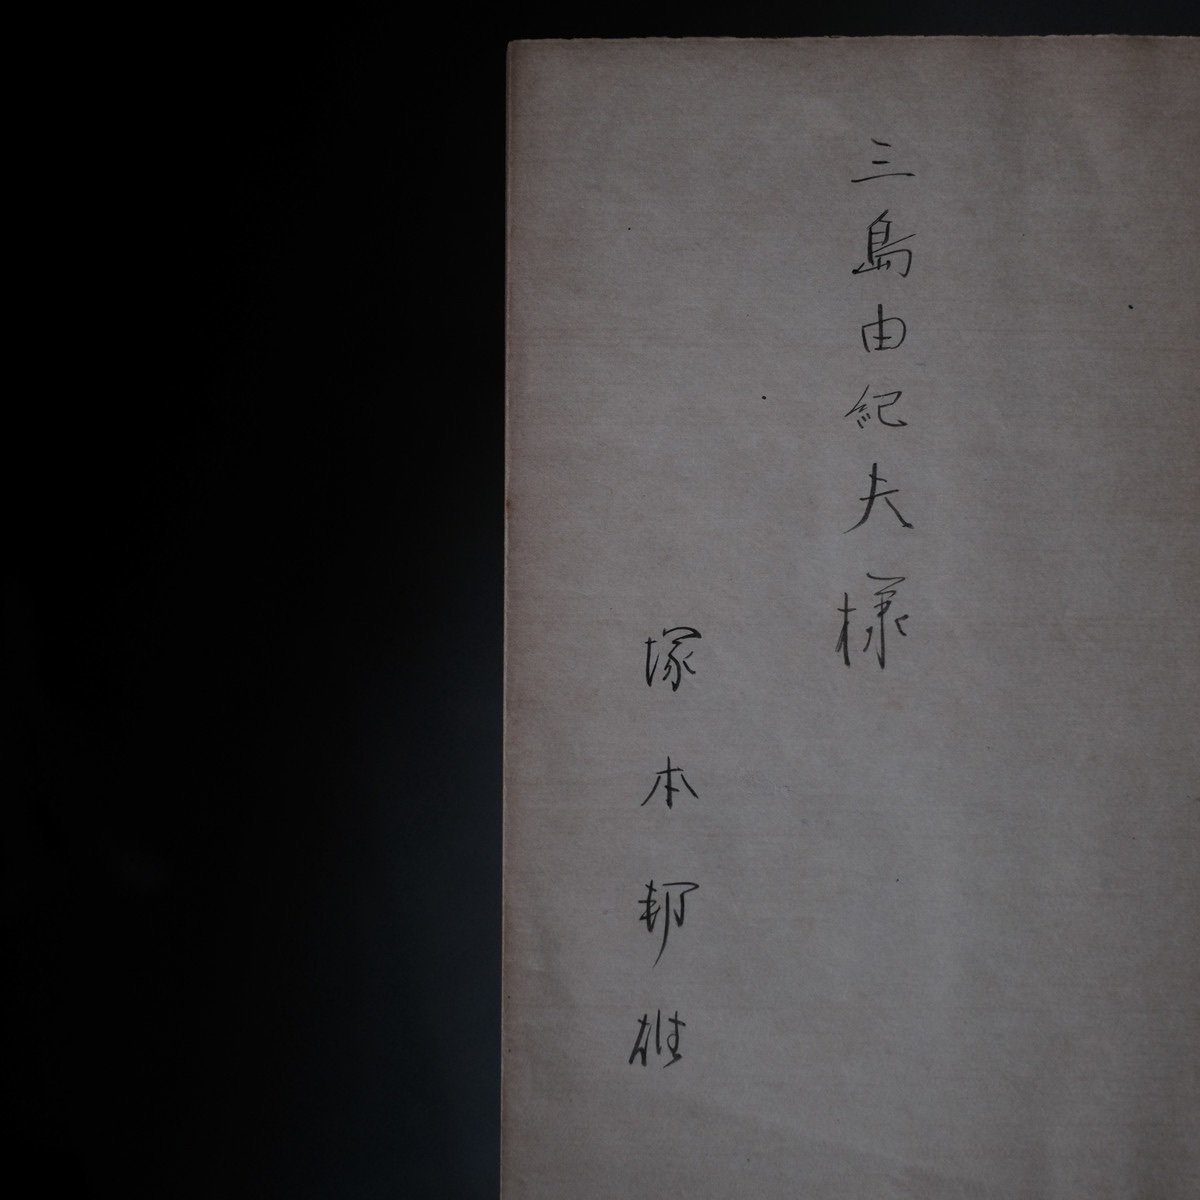 三島由紀夫様
塚本邦雄